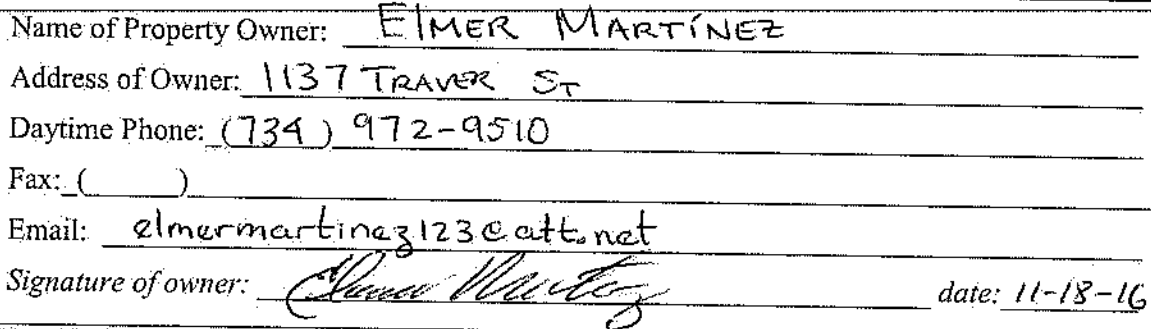 Name of Property Owner: ElMER MARTíNEZ
Address of Owner: 1137 TRAVER ST
Daytime Phone: (734) 972-9510
Fax: ( )
Email: elmermartinez123@att.net
Signature of owner: Elmer Martinez date: 11-18-16